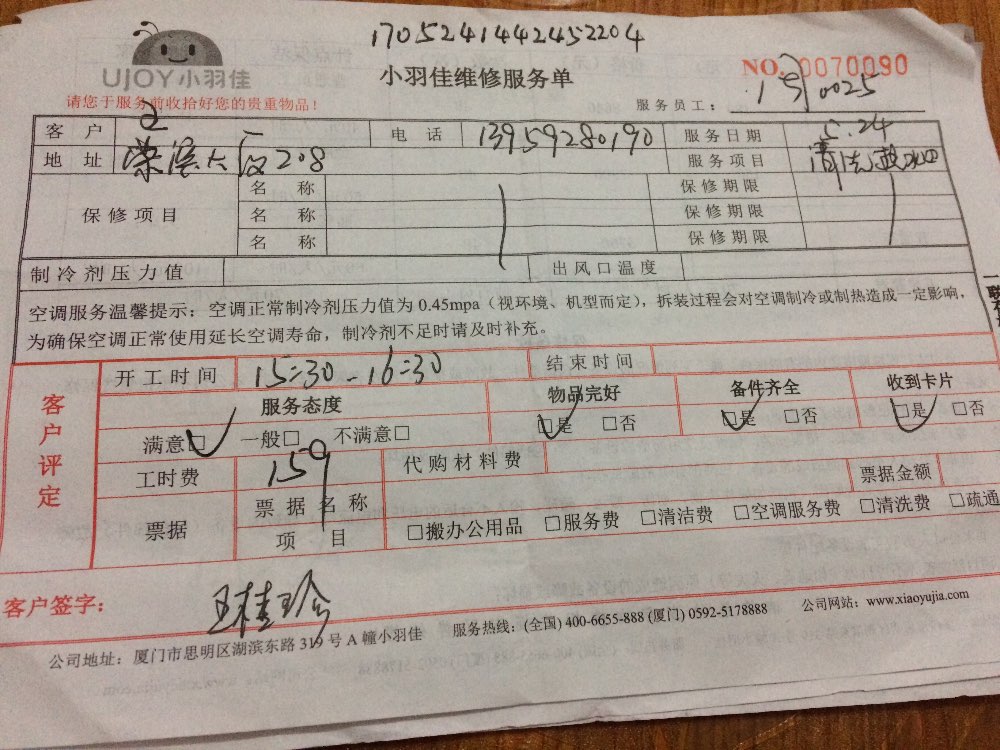 1705241442452204
UJOY小羽佳
小羽佳维修服务单
NO. 0070090
请您于服务前收拾好您的贵重物品!
服务员工: 0025
客户 王 电话 13959280190 服务日期 5.24
地址 荣滨大厦208 服务项目 清洗
保修项目 名称 保修期限
名称 保修期限
名称 保修期限
制冷剂压力值 出风口温度
空调服务温馨提示:空调正常制冷剂压力值为0.45mpa(视环境、机型而定),拆装过程会对空调制冷或制热造成一定影响,
为确保空调正常使用延长空调寿命,制冷剂不足时请及时补充。
客户评定
开工时间 15:30-16:30 结束时间
服务态度 物品完好 备件齐全 收到卡片
满意□ 一般□ 不满意□ □是 □否 □是 □否 □是 □否
工时费 159 代购材料费 票据金额
票据 票据名称
项目 □搬办公用品 □服务费 □清洁费 □空调服务费 □清洗费 □疏通
客户签字: 王桂珍
公司地址:厦门市思明区湖滨东路319号A幢小羽佳 服务热线:(全国) 400-6655-888 (厦门) 0592-5178888 公司网站:www.xiaoyujia.com